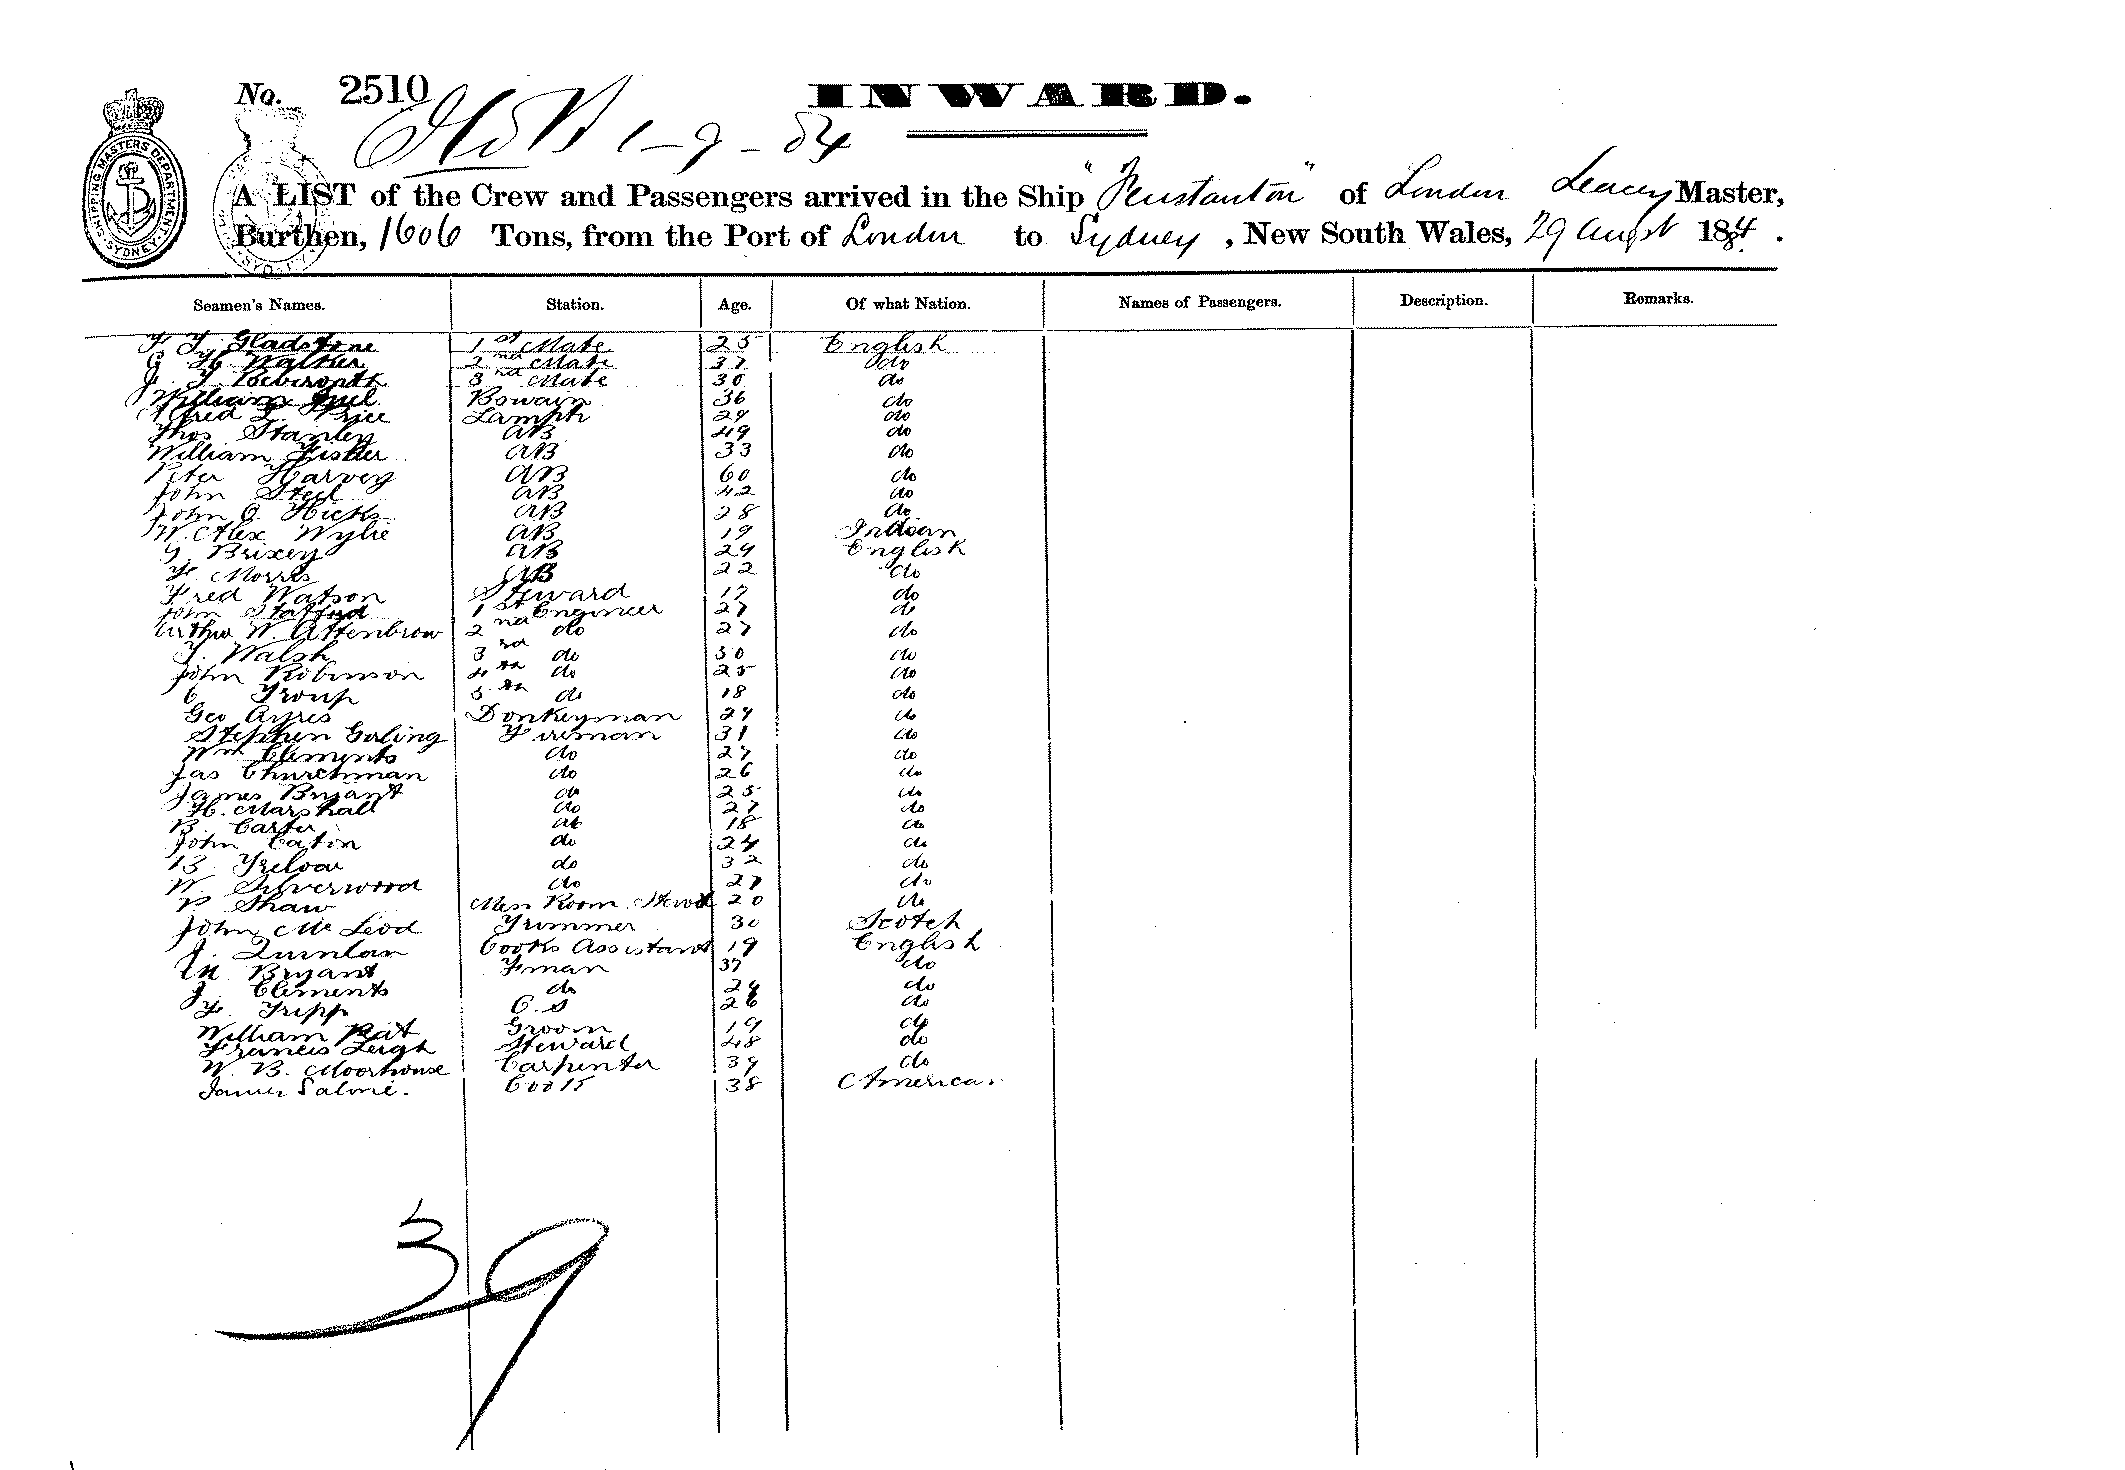 No. 2510
INWARD.
1-9-84
SHIPPING MASTERS DEPARTMENT SYDNEY
A LIST of the Crew and Passengers arrived in the Ship "Penstanton" of London Leacey Master,
Burthen, 1606 Tons, from the Port of London to Sydney, New South Wales, 29 Augst 1884.
Seamen's Names. Station. Age. Of what Nation. Names of Passengers. Description. Remarks.
Gladstone 1st Mate 25 English
G H Walker 2nd Mate 37 do
J. 3rd Mate 30 do
William Bswain 36 do
Alfred Price Lamptr 29 do
Thos Stanley AB 49 do
William Fisher AB 33 do
Peter Harvey AB 60 do
John Steel AB 42 do
John O. Hicks AB 28 do
W. Alex Wylie AB 19 Indian
G. Brixey AB 29 English
F. Morris AB 22 do
Fred Watson Steward 17 do
John Stafford 1st Engineer 27 do
Arthur W. Attenbrow 2nd do 27 do
T. Walsh 3rd do 30 do
John Robinson 4th do 25 do
C Troup 5th do 18 do
Geo Ayres Donkeyman 29 do
Stephen Goling Fireman 31 do
Wm Clements do 27 do
Jas Churchman do 26 do
James Bryant do 25 do
H. Marshall do 27 do
B. Carter do 18 do
John Eaton do 24 do
B Treloar do 32 do
W. Silverwood do 27 do
P Shaw Mess Room Stewd 20 do
John Mc Leod Trimmer 30 Scotch
J. Quinlan Cooks Assistant 19 English
W. Bryant Fman 37 do
J. Clements do 29 do
F. Tripp C.S 26 do
William Groom 19 do
Francis Leigh Steward 48 do
W. B. Moorhouse Carpenter 39 do
James Salmé. Cook 38 America
39